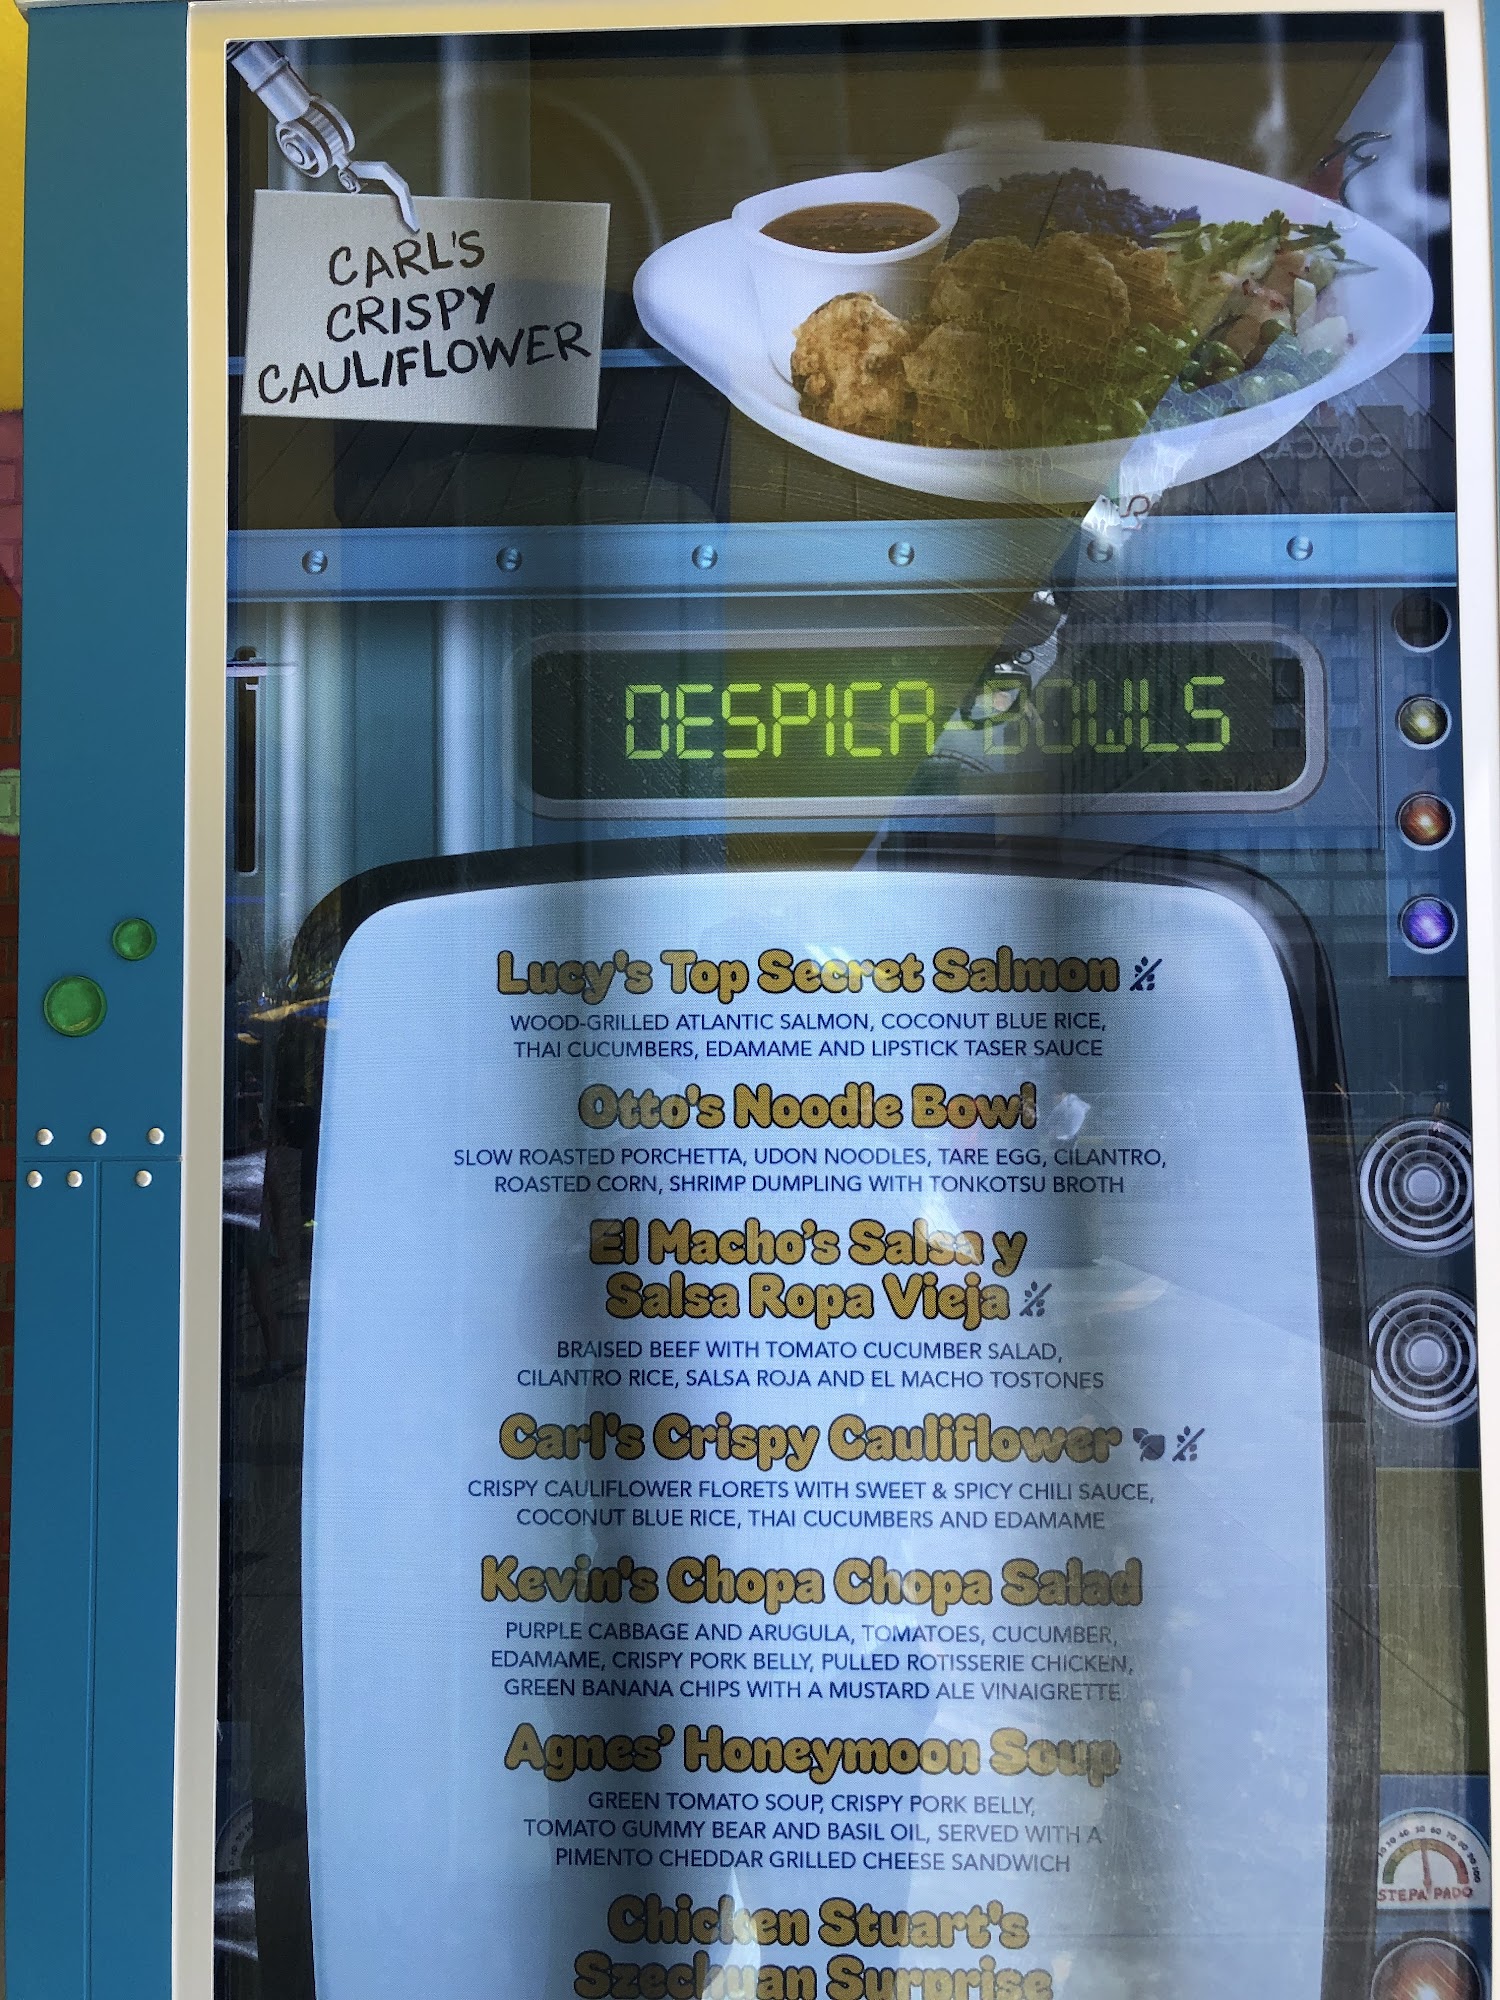 CARL'S
CRISPY
CAULIFLOWER
COMCAST
DESPICA-BOWLS
Lucy's Top Secret Salmon
WOOD-GRILLED ATLANTIC SALMON, COCONUT BLUE RICE,
THAI CUCUMBERS, EDAMAME AND LIPSTICK TASER SAUCE
Otto's Noodle Bowl
SLOW ROASTED PORCHETTA, UDON NOODLES, TARE EGG, CILANTRO,
ROASTED CORN, SHRIMP DUMPLING WITH TONKOTSU BROTH
El Macho's Salsa y
Salsa Ropa Vieja
BRAISED BEEF WITH TOMATO CUCUMBER SALAD,
CILANTRO RICE, SALSA ROJA AND EL MACHO TOSTONES
Carl's Crispy Cauliflower
CRISPY CAULIFLOWER FLORETS WITH SWEET & SPICY CHILI SAUCE,
COCONUT BLUE RICE, THAI CUCUMBERS AND EDAMAME
Kevin's Chopa Chopa Salad
PURPLE CABBAGE AND ARUGULA, TOMATOES, CUCUMBER,
EDAMAME, CRISPY PORK BELLY, PULLED ROTISSERIE CHICKEN,
GREEN BANANA CHIPS WITH A MUSTARD ALE VINAIGRETTE
Agnes' Honeymoon Soup
GREEN TOMATO SOUP, CRISPY PORK BELLY,
TOMATO GUMMY BEAR AND BASIL OIL, SERVED WITH A
PIMENTO CHEDDAR GRILLED CHEESE SANDWICH
STEPA PADO
Chicken Stuart's
Szechuan Surprise